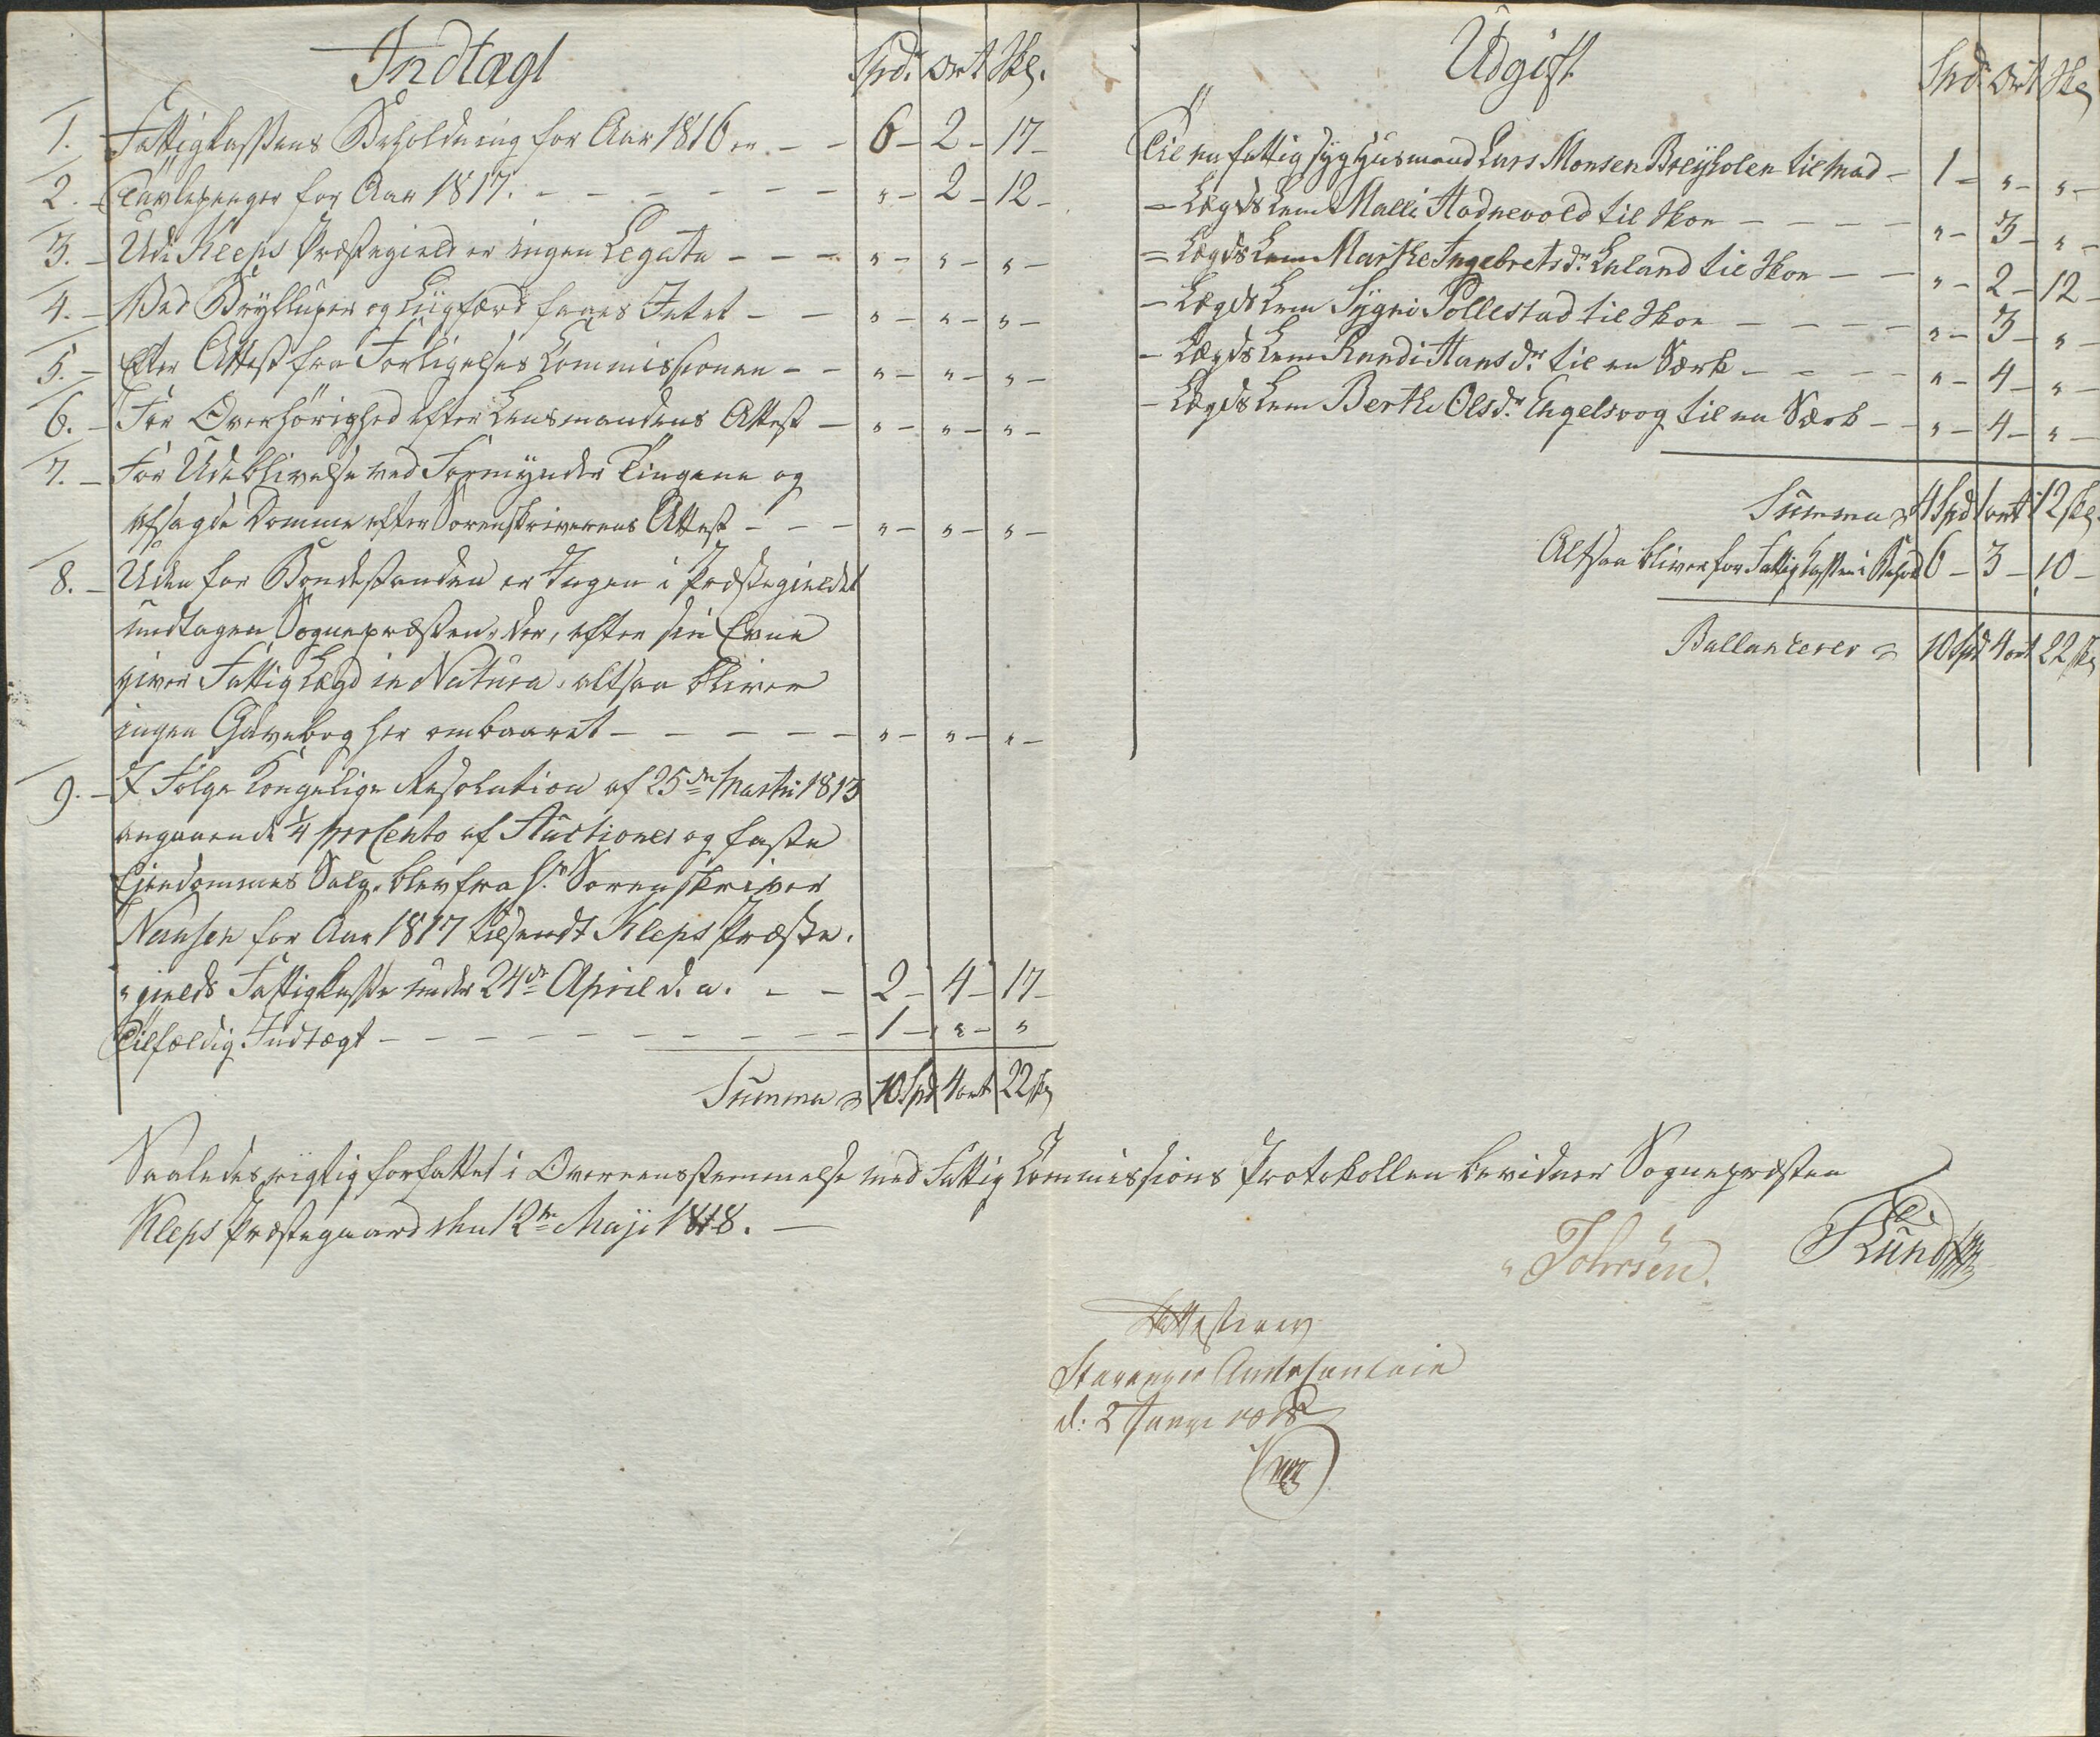 Indtægt Spd. Ort Skl.
1. Fattigkassens Beholdning for Aar 1816 er - - 6 - 2 - 17 -
2. Tavlepenger for Aar 1817. - - - - - - - " - 2 - 12 -
3. - Udi Kleps Præstegield er ingen Legata - - - " - " - " -
4. - Ved Brylluper og Liigfærd faaes Intet - - " - " - " -
5. - Efter Attest fra Forligelses Commissionen - - " - " - " -
6. - For Overhørighed efter Lensmandens Attest - " - " - " -
7. - For Udeblivelse ved Formynder Tingene og
afsagde Domme efter Sorenskriverens Attest - - - " - " - " -
8. - Uden for Bondestanden er Ingen i Præstegieldet
undtagen Sognepræsten, der, efter sin Evne
giver Fattig Lægd in Natura, altsaa bliver
ingen Gavebog her ombaaret - - - - - " - " - " -
9. - I Følge Kongelige Resolution af 25de Martii 1813
angaaende 1/4 pro Cento af Auctioner og faste
Ejendommes Salg, blev fra Hr. Sorenskriver
Nansen for Aar 1817 tilsendt Kleps Præste-
" gields Fattigkasse under 24de April d. a. - - 2 - 4 - 17 -
Tilfældig Indtægt - - - - - - - - - - 1 - " - "
Summa = 10 Spd 4 ort 22 sk
Udgift Spd. Ort Skl
Til en fattig syg Huusmand Lars Monsen Breyholen til Mad - 1 - " - " -
- Lægds Lem Malli Hadnevold til Skoe - - - - " - 3 - " -
= Lægds Lem Marthe Ingebretsdr. Laland til Skoe - - " - 2 - 12 -
- Lægds Lem Sygni Pollestad til Skoe - - - - " - 3 - " -
- Lægds Lem Randi Hansdr. til en Særk - - - - " - 4 - " -
- Lægds Lem Berthe Olsdr. Engelsvog til en Særk - - " - 4 - " -
Summa = 4 Spd 1 ort 12 skl.
Altsaa bliver for Fattig Kassen i Behold 6 - 3 - 10 -
Ballancerer = 10 Spd 4 ort 22 sk
Saaledes rigtig forfattet i Overeensstemmelse med Fattig Commissions Protokollen bevidner Sognepræsten
Kleps Præstegaard den 12te Maji 1818. -
Lund
Attesterer
Stavanger
d: 2 Junii 1818